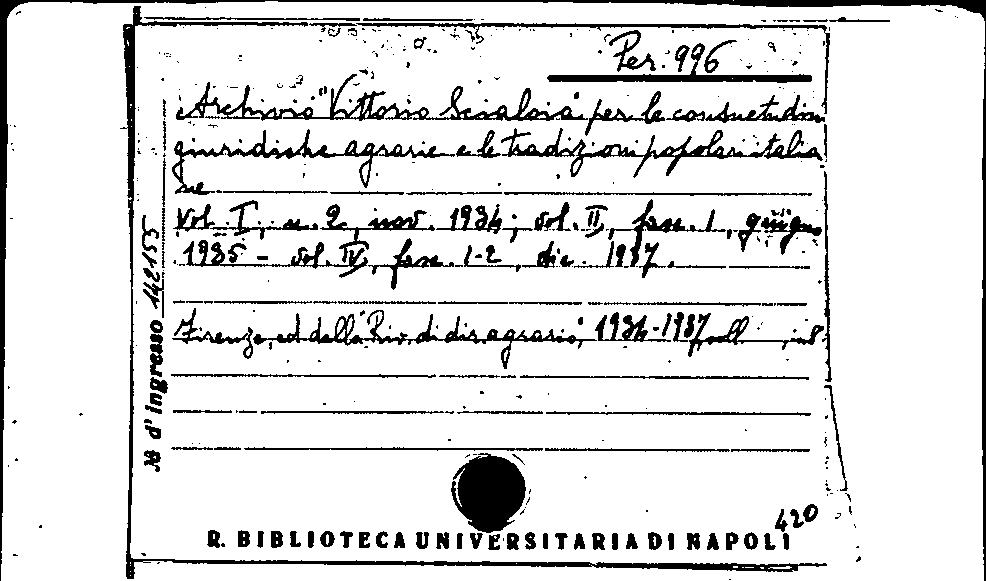 Per. 996
Archivio "Vittorio Scialoia" per le consuetudini
giuridiche agrarie e le tradizioni popolari italia
ne
Vol. I, n. 2, nov. 1934; vol. II, fasc. 1, giugno
1935 - vol. IV, fasc. 1-2, dic. 1937.
Firenze, ed. della "Riv. di dir. agrario", 1934-1937, voll , in 8°
N d'ingresso 142155
420
R. BIBLIOTECA UNIVERSITARIA DI NAPOLI